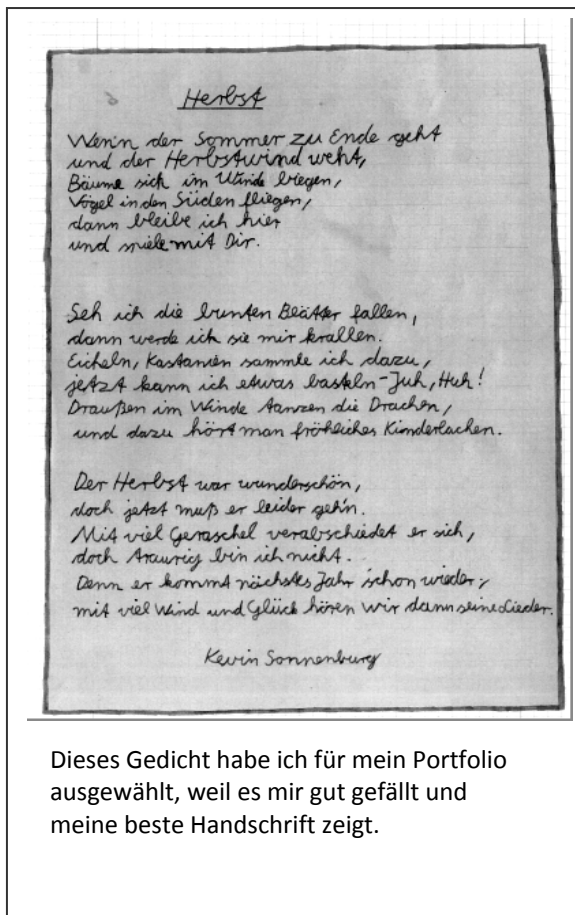 Herbst
Wenn der Sommer zu Ende geht
und der Herbstwind weht,
Bäume sich im Winde biegen,
Vögel in den Süden fliegen,
dann bleibe ich hier
und spiele mit Dir.
Seh ich die bunten Blätter fallen,
dann werde ich sie mir krallen.
Eicheln, Kastanien sammle ich dazu,
jetzt kann ich etwas basteln-Juh, Huh!
Draußen im Winde tanzen die Drachen,
und dazu hört man fröhliches Kinderlachen.
Der Herbst war wunderschön,
doch jetzt muß er leider geh'n.
Mit viel Geraschel verabschiedet er sich,
doch traurig bin ich nicht.
Denn er kommt nächstes Jahr schon wieder,
mit viel Wind und Glück hören wir dann seine Lieder.
Kevin Sonnenburg
Dieses Gedicht habe ich für mein Portfolio
ausgewählt, weil es mir gut gefällt und
meine beste Handschrift zeigt.